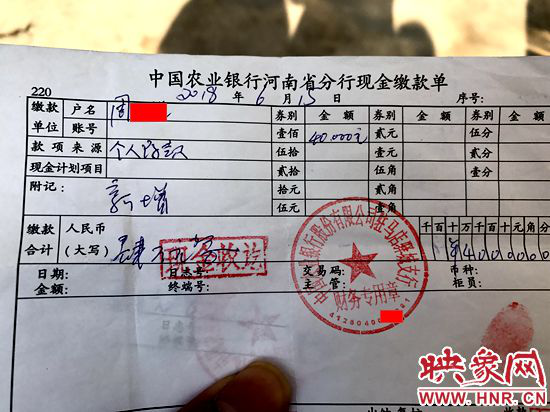 中国农业银行河南省分行现金缴款单
220
2018 年 6 月 15 日 序号:
缴款单位 户名 周 券别 金额 券别 金额 券别 金额
账号 壹佰 40,000元 贰元 伍分
款项来源 个人 伍拾 壹元 贰分
现金计划项目 贰拾 伍角 壹分
附记: 新增 拾元 贰角
伍元 壹角
缴款合计 人民币(大写) 肆万 千百十万千百十元角分
¥4000000
现金收讫
日期: 日志号: 交易码: 币种:
金额: 终端号: 主管: 柜员:
财务专用章
映象网
WWW.HNR.CN